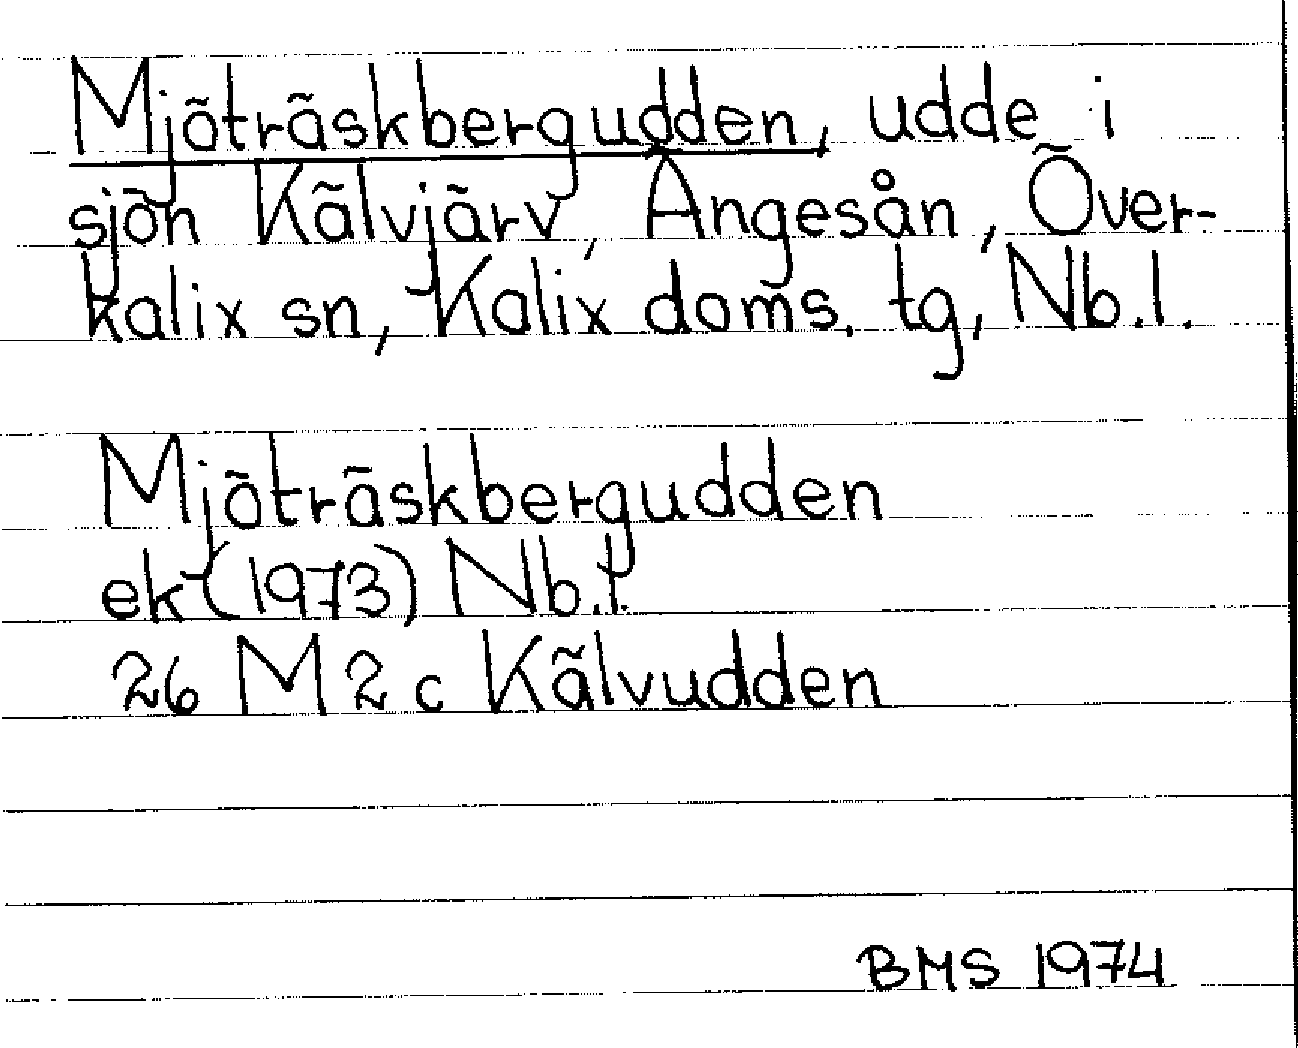 Mjöträskbergudden, udde i
sjön Kälvjärv, Ängesån, Över-
kalix sn, Kalix doms. tg, Nb.l.
Mjöträskbergudden
ek (1973) Nb.l.
26 M 2 c Kälvudden
BMS 1974